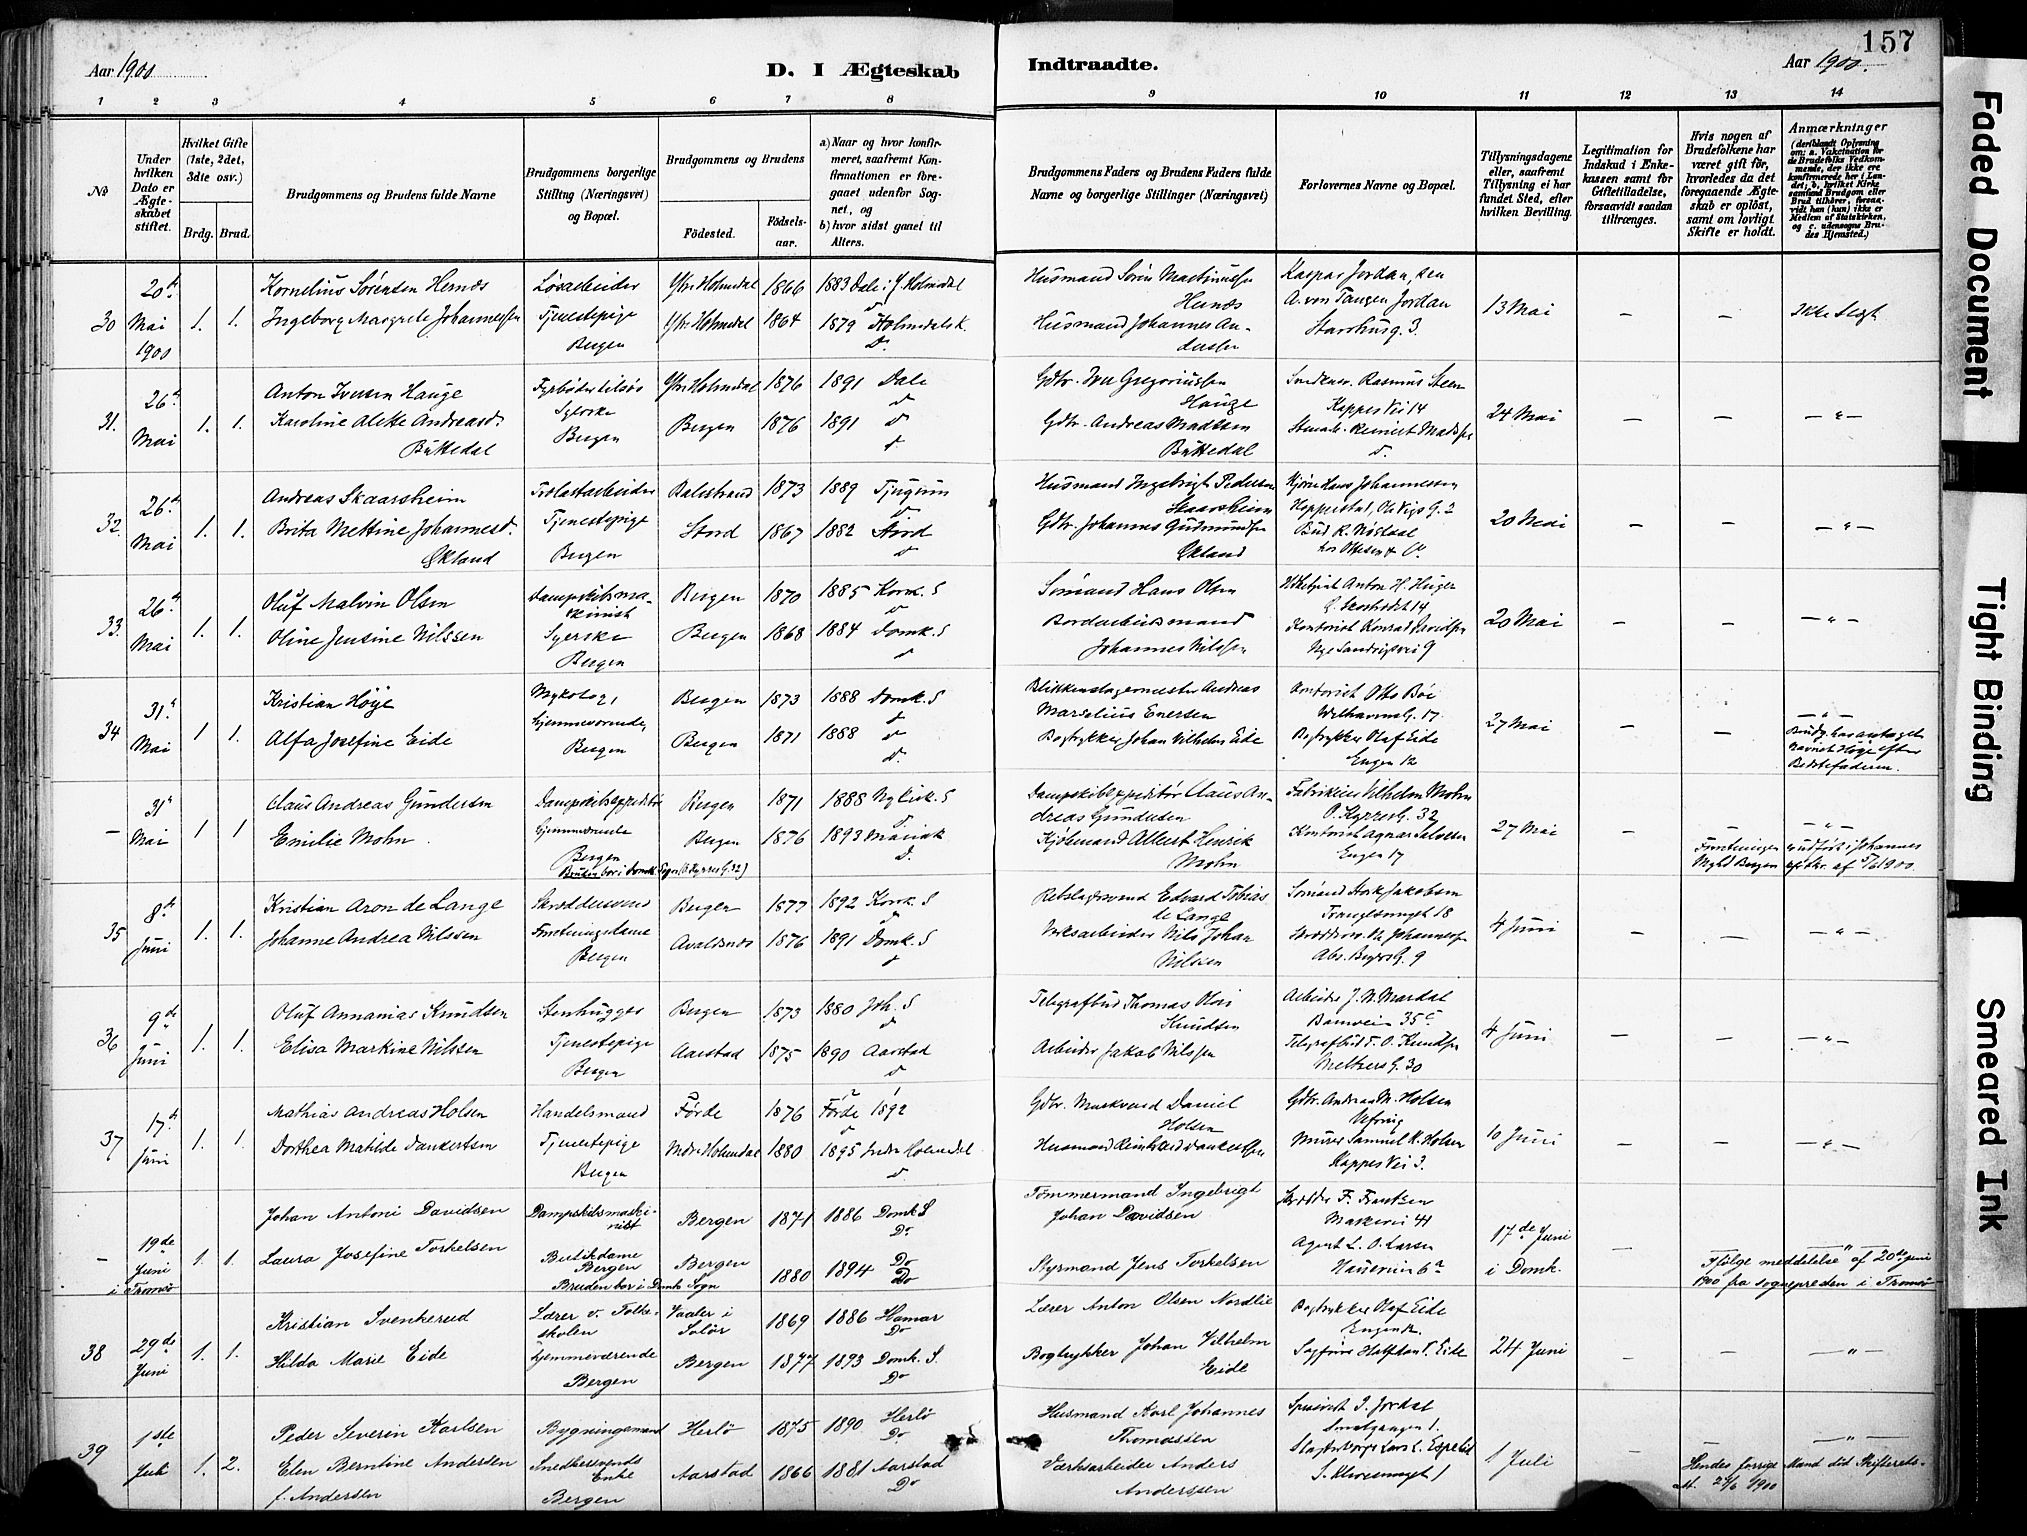 Aar 1900
D. I Ægteskab
Indtraadte.
Aar 1900.
157
1 2 3 4 5 6 7 8 9 10 11 12 13 14
No
Under hvilken Dato er Ægteskabet stiftet.
Hvilket Gifte (1ste, 2det, 3dte osv.)
Brdg. Brud.
Brudgommens og Brudens fulde Navne
Brudgommens borgerlige Stilling (Næringsvei) og Bopæl.
Brudgommens og Brudens
Fødested.
Fødselsaar.
a) Naar og hvor konfirmeret, saafremt Konfirmationen er foregaaet udenfor Sognet, og
b) hvor sidst gaaet til Alters.
Brudgommens Faders og Brudens Faders fulde Navne og borgerlige Stillinger (Næringsvei)
Forlovernes Navne og Bopæl.
Tillysningsdagene eller, saafremt Tillysning ei har fundet Sted, efter hvilken Bevilling.
Legitimation for Indskud i Enkekassen samt for Giftetilladelse, forsaavidt saadan tiltrænges.
Hvis nogen af Brudefolkene har været gift før, hvorledes da det foregaaende Ægteskab er opløst, samt om lovligt Skifte er holdt.
Anmærkninger (deriblandt Oplysning om: a. Vakcination for de Brudefolks Vedkommende, der ikke ere konfirmerede her i Landet; b. hvilket Kirkesamfund Brudgom eller Brud tilhører, forsaavidt han (hun) ikke er Medlem af Statskirken, og c. udensogns Brudes Hjemsted.)
30 20de Mai 1900 1. 1.
Kornelius Sørensen Hernes
Ingeborg Margrete Johannessen
Tjenestepige
Bergen
Ytre Holmedal 1866 1883 Dale i Y. Holmedal
Ytr Holmedal 1864 1879 Holmedals K.
Do
Husmand Søren Martinussen
Hernes
Husmand Johannes Andersen
Kaspar Jordan, sen
A. von Tangen Jordan
13 Mai — — Ikke Slegt
31. 26de Mai 1. 1.
Anton Iversen Hauge
Karoline Alette Andreasd.
Büttedal
Syerske
Bergen
Ytr Holmedal 1876 1891 Dale
Bergen 1876 1891
Gdbr. Iver Gregoriussen
Hauge
Gdbr. Andreas Madssen
Büttedal
Rasmus Steen
Kappes Vei 14
24 Mai — — — " —
32. 26de Mai 1. 1.
Andreas Skaarsheim
Brita Mettine Johannesd.
Økland
Tjenestepige
Bergen
Balestrand 1873 1889 Tjugum
Stord 1867 1882 Stord
Husmand Ingebrigt Pedersen
Skaarsheim
Gdbr. Johannes Gudmundsen
Økland
Hans Johannessen
20 Mai — — — " —
33. 26de Mai 1. 1.
Oluf Malvin Olsen
Oline Jensine Nilssen
Dampskibsmaskinist
Syerske
Bergen
Bergen 1870 1885 Korsk. S
Bergen 1868 1884 Domk. S
Sømand Hans Olsen
Bordarbeidsmand
Johannes Nilssen
Kontorist Konrad Davidsen
Nye Sandviksvei 9
20 Mai — — — " —
34 31te Mai 1 1.
Kristian Høye
Alfa Josefine Eide
Mykolog,
hjemmeværende,
Bergen
Bergen 1873 1888 Domk. S
Bergen 1871 1888
Do.
Blikkenslagermester Andreas
Marselius Enersen
Bogtrykker Johan Vilhelm Eide
Kontorist Otto Bøe
Welhavens G. 17.
Bogtrykker Olaf Eide
Engen 12
27 Mai — — — " —
Brudg. har antaget
Navnet Høye efter
Bedstefaderen.
— 31te Mai 1 1
Claus Andreas Gundersen
Emilie Mohn
Dampskibsexpeditør
hjemmeværende
Bergen
Bruden bor i Domk. Sogn (O. Kyrres G. 32)
Bergen 1871 1888 Nykirk. S
Bergen 1876 1893 Mariak
D.
Dampskibsexpeditør Claus Andreas Gundersen
Kjøbmand Albert Henrik
Mohn
Fabrikeier Vilhelm Mohn
O. Kyrres G. 32
Kontorist Agnar Salvesen
Engen 17
27 Mai — — — " —
Forretningen udført i Johannes
35 8de Juni 1. 1.
Kristian Aron de Lange
Johanne Andrea Nilssen
Skræddersvend
Forretningsdame
Bergen
Bergen 1877 1892 Korsk. S
Avaldsnes 1876 1891 Domk. S
Rebslagersvend Edvard Tobias
de Lange
Verksarbeider Nils Johan
Nilssen
4 Juni — — — " —
36 9de Juni 1. 1.
Oluf Annanias Knudsen
Elisa Markine Nilssen
Stenhugger
Tjenestepige
Bergen
Bergen 1873 1880 Joh. S
Aarstad 1875 1890 Aarstad
Telegrafbud Thomas Olai
Knudsen
Arbeider Jakob Nilssen
Arbeider J. N. Mardal
Damveien 35c
Telegrafbud T. O. Knudsen
Meltzers G. 30
4 Juni — — — " —
37 17de Juni 1. 1.
Mathias Andreas Holsen
Dorthea Matilde Dankertsen
Handelsmand
Tjenestepige
Bergen
Førde 1876 Førde 1892
Indre Holmedal 1880 1895 Indre Holmedal
Gdbr. Markvard Daniel
Holsen
Husmand Reinhard Dankertsen
Gdbr. Andreas M. Holsen
Murer Samuel K. Holsen
Kappes Vei 3.
10 Juni — — — " —
— 19de Juni i Tromsø 1. 1.
Johan Antoni Davidsen
Laura Josefine Torkelsen
Dampskibsmaskinist
Butikdame
Bergen
Bruden bor i Domk Sogn
Bergen 1871 1886 Domk S
Do
Bergen 1880 1894 Do
Do
Tømmermand Ingebrigt
Johan Davidsen
Styrmand Jens Torkelsen
Skrædder F. Frantsen
Agent L. O. Larsen
17de Juni
i Domk. — — — " —
Ifølge meddelelse af 20de juni
1900 fra sognepresten i Tromsø
38 29de Juni 1. 1.
Kristian Svenkerud
Hilda Marie Eide
Lærer v. Folkeskolen
hjemmeværende
Bergen
Vaaler i
Solør 1869 1886 Hamar
Do
Bergen 1877 1893 Domk. S.
Do
Lærer Anton Olsen Nordlie
Bogtrykker Johan Vilhelm
Eide
Bogtrykker Olaf Eide
Engen 12.
Sagfører Halfdan T. Eide
24 Juni — — — " —
39 1ste Juli 1. 2.
Peder Severin Karlsen
Elen Berntine Andersen
f. Andersen
Bygningsmand
Snedkersvends
Enke
Bergen
Herlø 1875 1890 Herlø
Do.
Aarstad 1866 1881 Aarstad
Do
Husmand Karl Johannes
Thomassen
Værksarbeider Anders
Anderssen
Smalgangen 1.
1 Juli — — — " —
Hendes forrige Mand død Skifteretsatt. 21/6 1900
Faded Document
Tight Binding
Smeared Ink